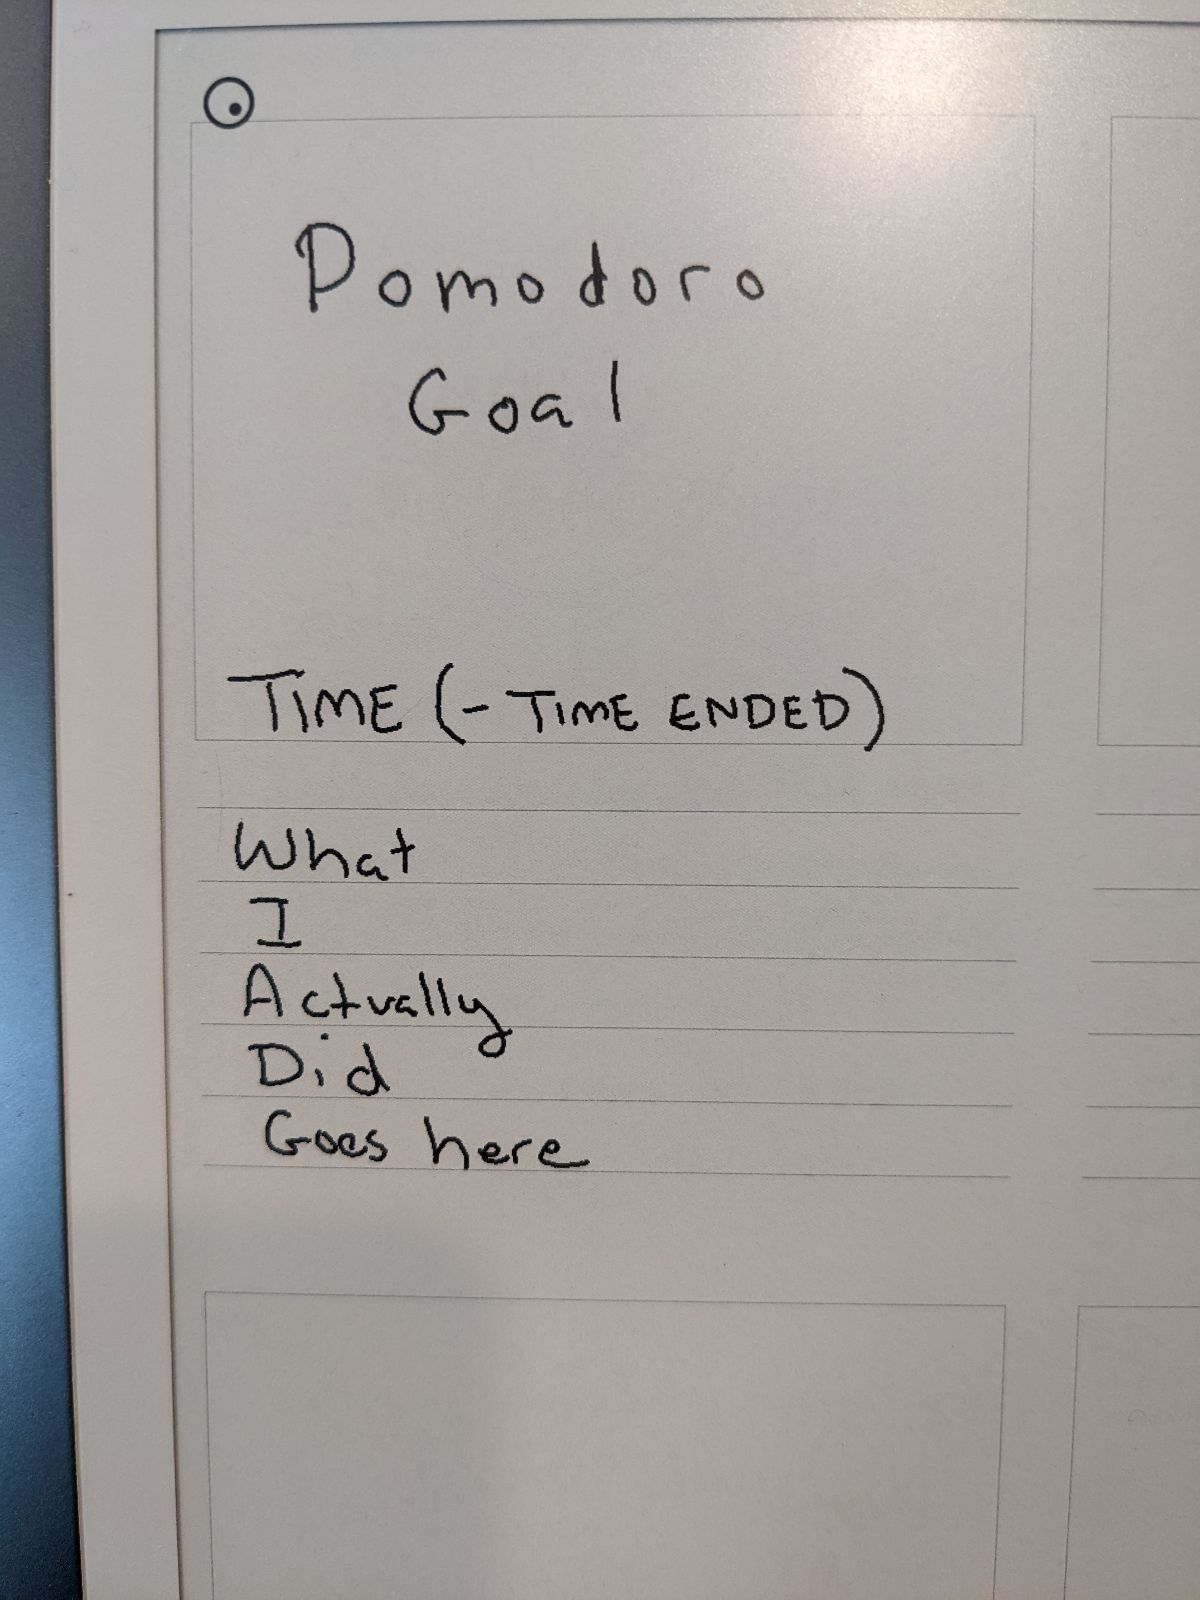 Pomodoro
Goal
TIME (- TIME ENDED)
What
I
Actually
Did
Goes here